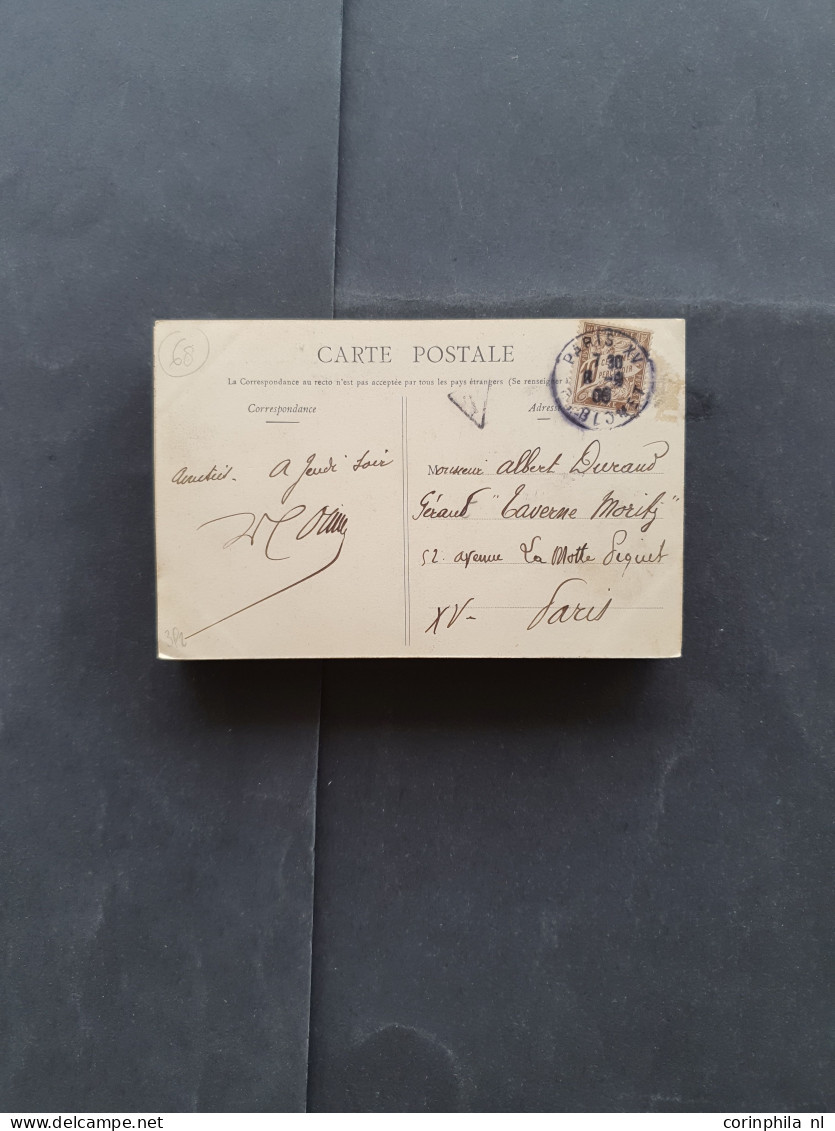 68
CARTE POSTALE
La Correspondance au recto n'est pas acceptée par tous les pays étrangers (Se renseigner
Correspondance
Adresse
PARIS XV
7 30
8 -9
05
R. BLOMET
Amitiés. A Jeudi soir
Monsieur Albert Durand
Gérant "Taverne Moritz"
52. avenue La Motte Piquet
XV- Paris
corinphila nl